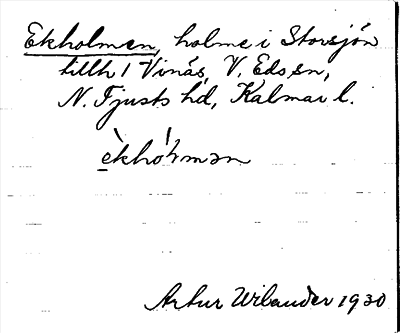 Ekholmen, holme i Storsjön
tillh 1 Vinäs, V. Eds sn,
N. Tjusts hd, Kalmar l.
èkhól'mən
Artur Wilander 1930